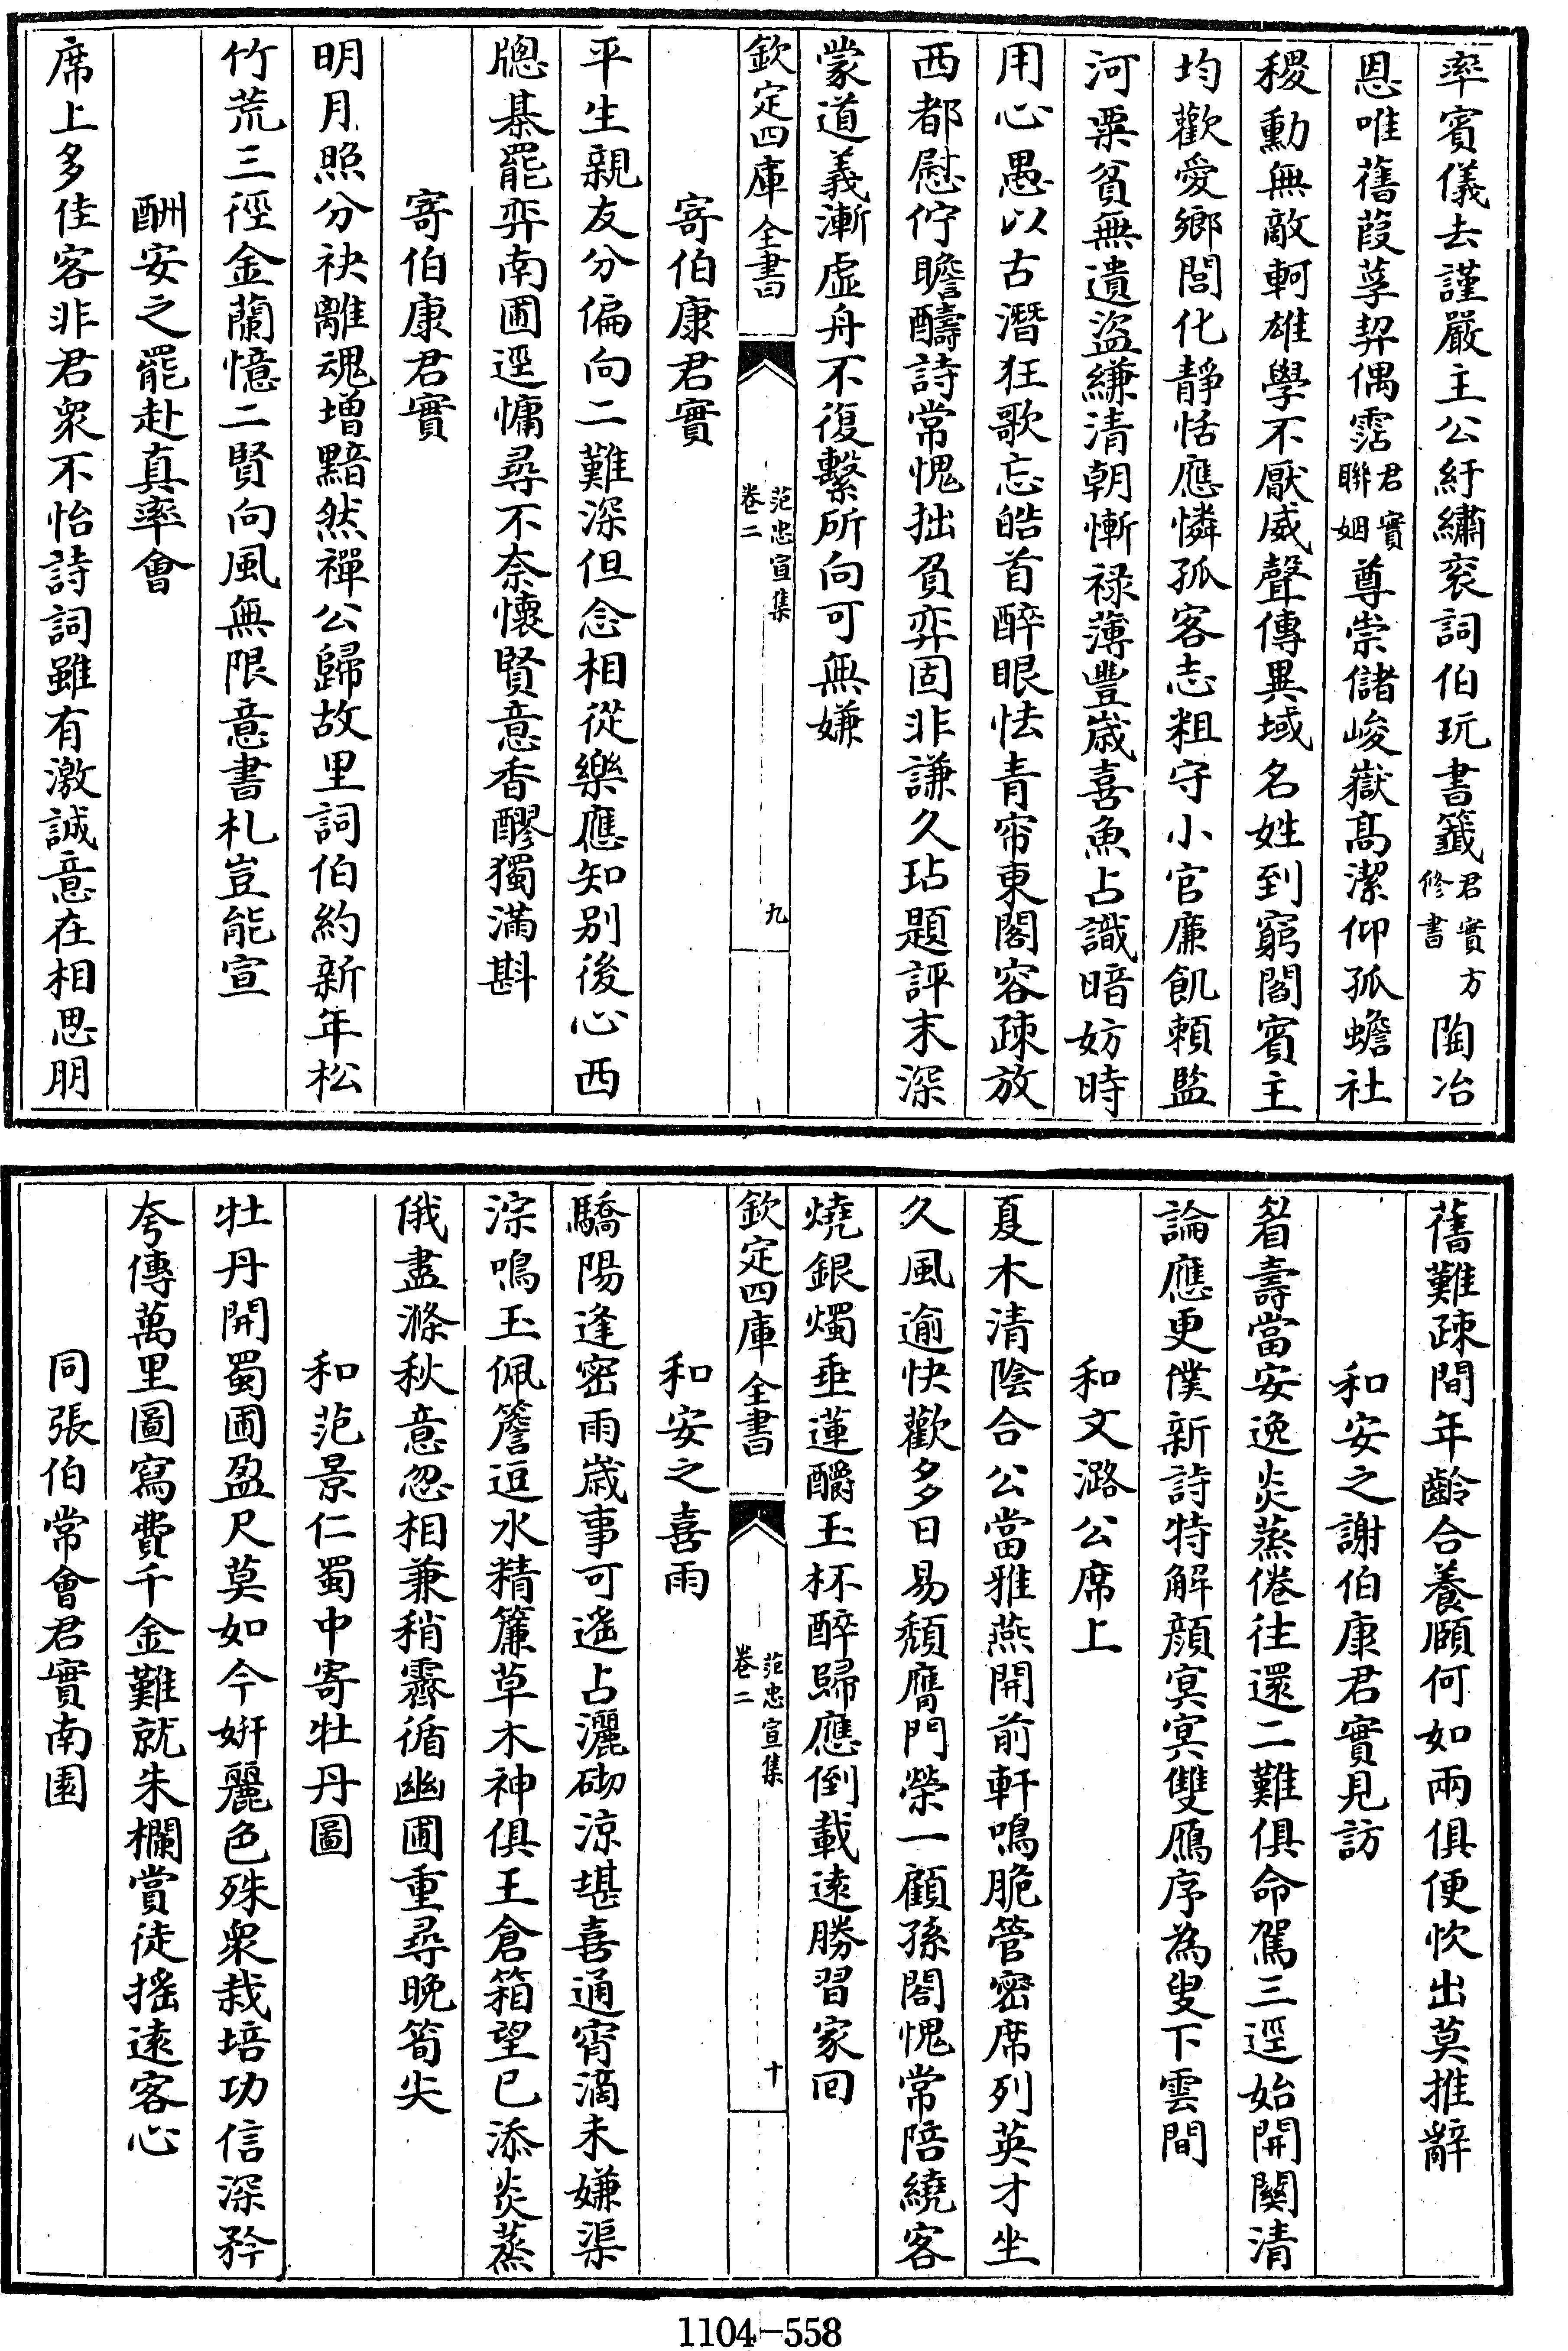 率賓儀去謹嚴主公紆繡衮詞伯玩書籖君實方修書陶冶
恩唯舊葭莩契偶霑君實聯姻尊崇儲峻嶽高潔仰孤蟾社
稷勳無敵軻雄學不厭威聲傳異域名姓到窮閻賓主
均歡愛鄉閭化靜恬應憐孤客志粗守小官廉飢頼監
河粟貧無遺盜縑清朝慚禄薄豐歳喜魚占識暗妨時
用心愚以古潛狂歌忘皓首醉眼怯青帘東閣容疎放
西都慰佇瞻醻詩常愧拙負弈固非謙久玷題評末深
蒙道義漸虛舟不復繫所向可無嫌
欽定四庫全書
范忠宣集
卷二
九
寄伯康君實
平生親友分偏向二難深但念相從樂應知别後心西
牕棊罷弈南圃逕慵尋不奈懷賢意香醪獨滿斟
寄伯康君實
明月照分袂離魂增黯然禪公歸故里詞伯約新年松
竹荒三徑金蘭憶二賢向風無限意書札豈能宣
酬安之罷赴真率會
席上多佳客非君衆不怡詩詞雖有激誠意在相思朋
舊難疎間年齡合養頤何如兩俱便忺出莫推辭
和安之謝伯康君實見訪
耆壽當安逸炎蒸倦往還二難俱命駕三逕始開關清
論應更僕新詩特解顔冥冥雙鴈序為叟下雲間
和文潞公席上
夏木清陰合公當雅燕開前軒鳴脆管密席列英才坐
久風逾快歡多日易頽膺門榮一顧孫閤愧常陪繞客
燒銀燭垂蓮釂玉杯醉歸應倒載遠勝習家回
欽定四庫全書
范忠宣集
卷二
十
和安之喜雨
驕陽逢密雨歳事可遙占灑砌涼堪喜通宵滴未嫌渠
淙鳴玉佩簷逗水精簾草木神俱王倉箱望已添炎蒸
俄盡滌秋意忽相兼稍霽循幽圃重尋晚筍尖
和范景仁蜀中寄牡丹圖
牡丹開蜀圃盈尺莫如今妍麗色殊衆栽培功信深矜
夸傳萬里圖寫費千金難就朱欄賞徒揺遠客心
同張伯常會君實南園
1104-558